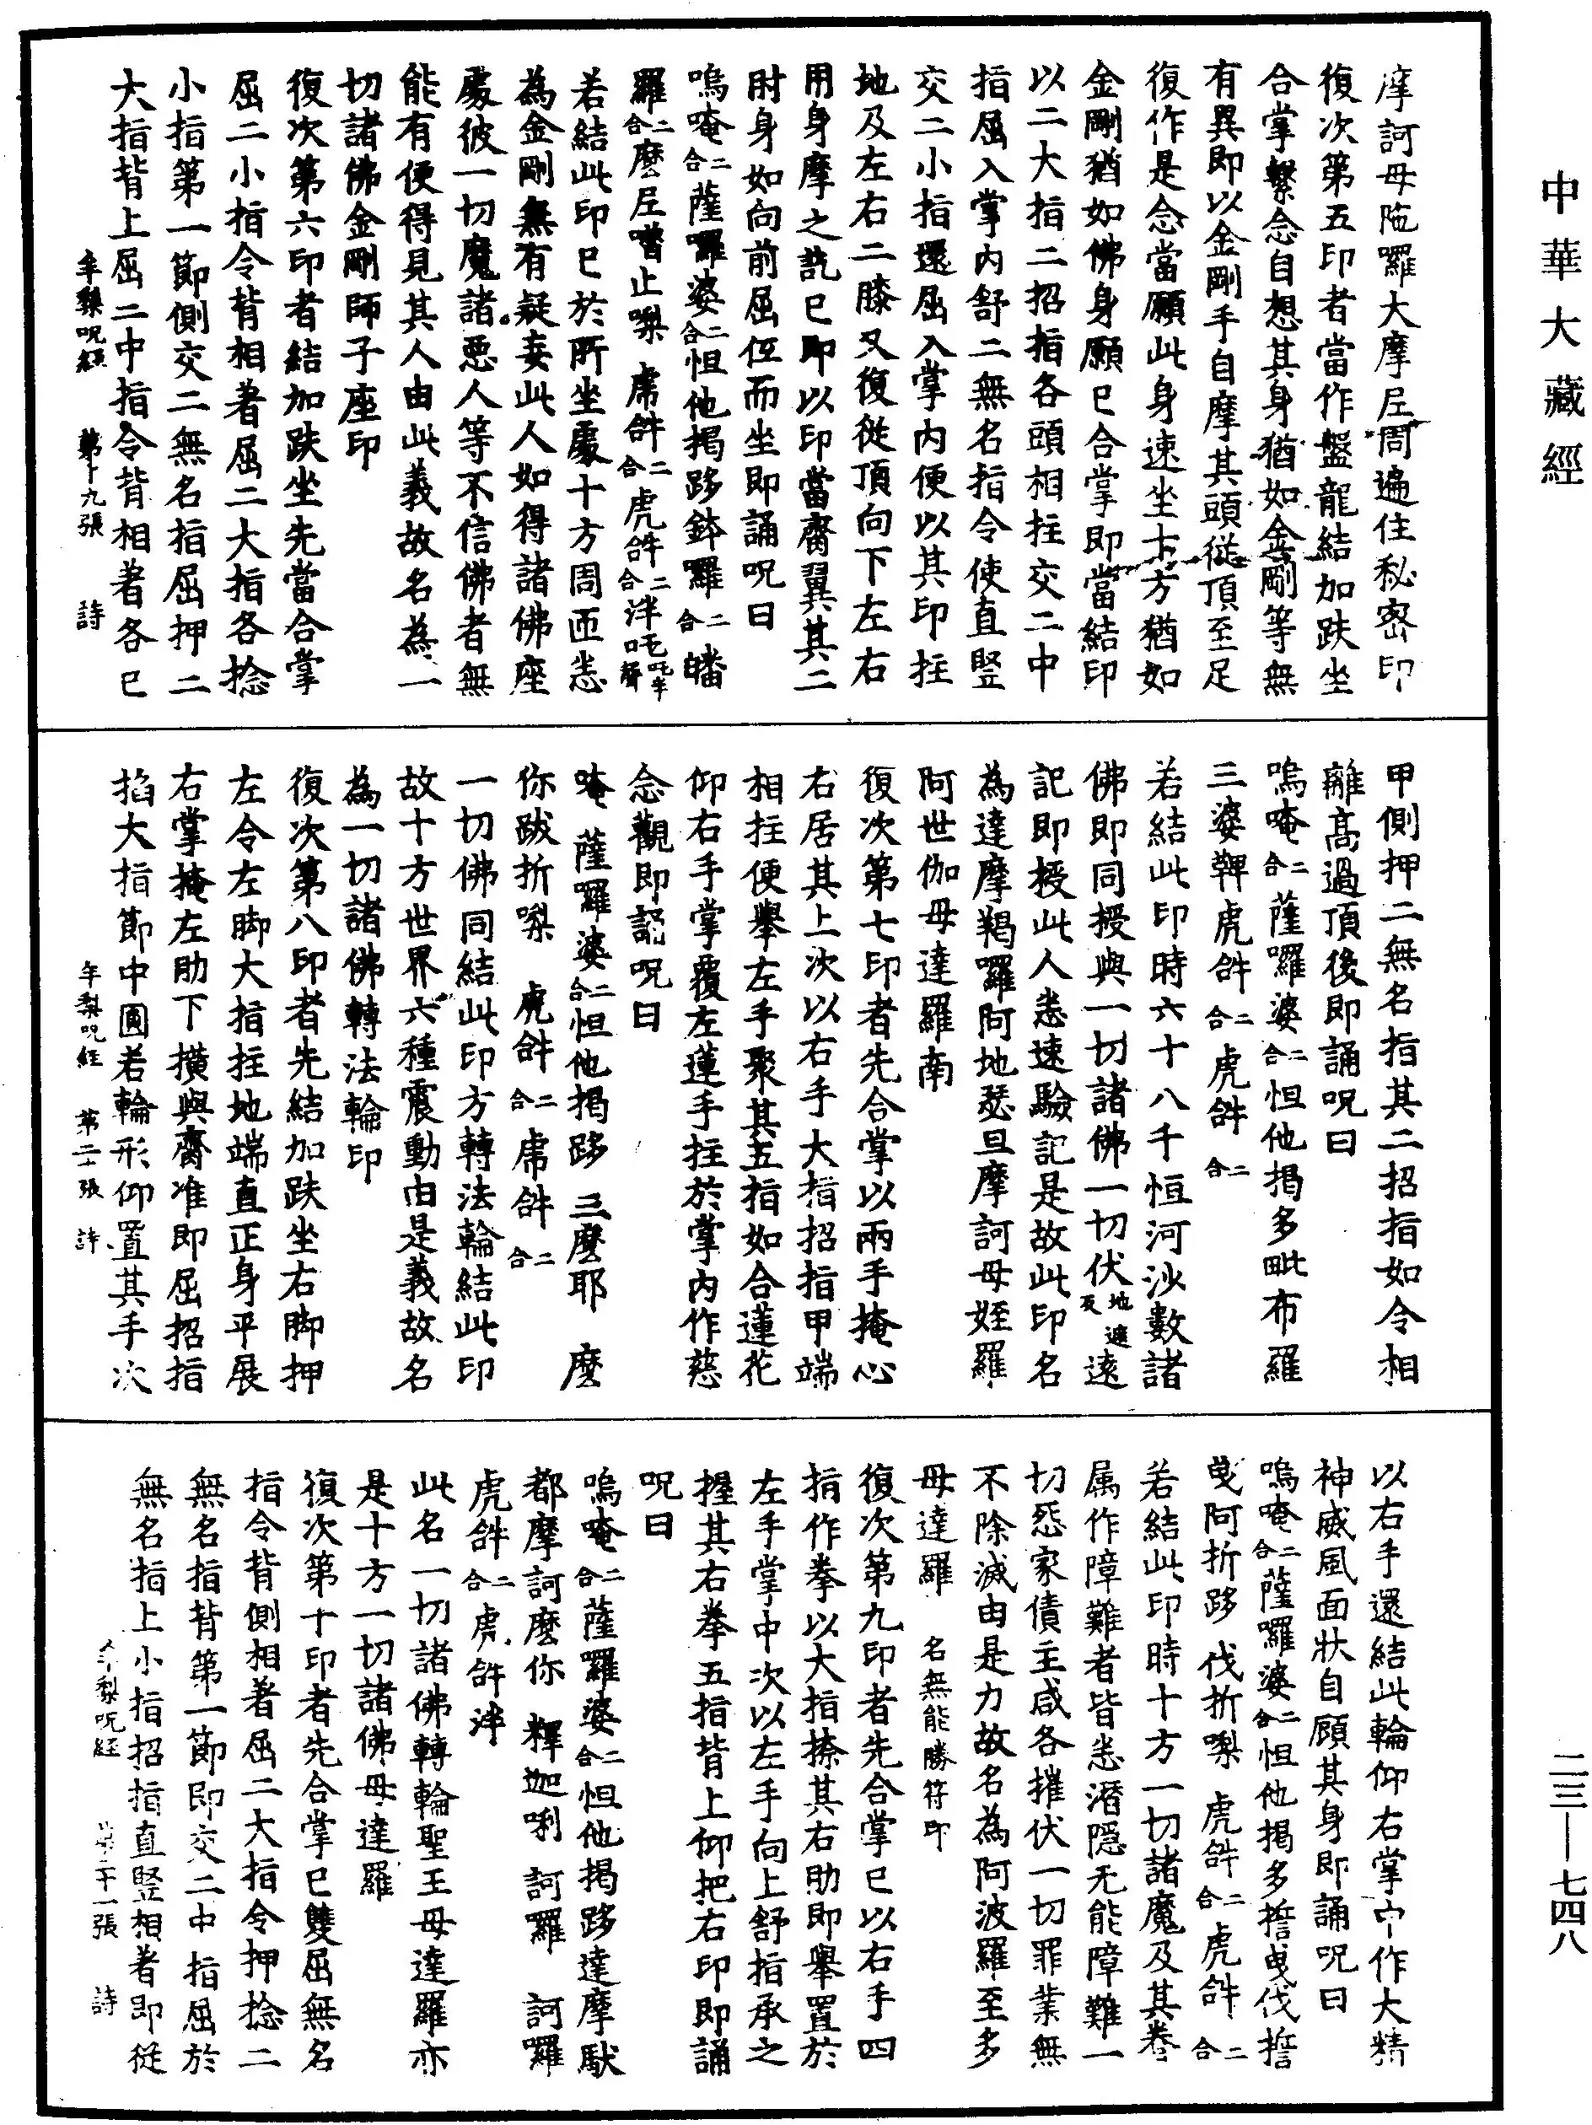 中華大藏經
摩訶母陁囉大摩尼周遍住秘密印
復次第五印者當作盤龍結加趺坐
合掌繫念自想其身猶如金剛等無
有異即以金剛手自摩其頭從頂至足
復作是念當願此身速坐十方猶如
金剛猶如佛身願已合掌即當結印
以二大指二招指各頭相拄交二中
指屈入掌內舒二無名指令使直竪
交二小指還屈入掌內便以其印拄
地及左右二膝又復從頂向下左右
用身摩之訖已即以印當齎翼其二
肘身如向前屈伍而坐即誦呪曰
嗚唵二合薩囉婆二合怛他揭跢鉢囉二合皤
羅二合麼尼嚐止㗚 虎𤙖二合虎𤙖二合泮
若結此印已於所坐處十方周匝悉
為金剛無有疑妄此人如得諸佛座
處彼一切魔諸惡人等不信佛者無
能有便得見其人由此義故名為一
切諸佛金剛師子座印
復次第六印者結加趺坐先當合掌
屈二小指令背相著屈二大指各捻
小指第一節側交二無名指屈押二
大指背上屈二中指令背相著各已
牟梨呪經 第十九張 詩
甲側押二無名指其二招指如令相
離高過頂後即誦呪曰
嗚唵二合薩囉婆二合怛他揭多毗布羅
三婆鞞虎𤙖二合虎𤙖二合
若結此印時六十八千恒河沙數諸
佛即同授與一切諸佛一切伏遠
記即授此人悉速驗記是故此印名
為達摩羯囉阿地瑟旦摩訶母姪羅
阿世伽母達羅南
復次第七印者先合掌以兩手掩心
右居其上次以右手大指招指甲端
相拄便舉左手聚其五指如合蓮花
仰右手掌覆左蓮手拄於掌內作慈
念觀即誦呪曰
唵 薩囉婆二合怛他揭跢 三麼耶 麼
你跋折㗚 虎𤙖二合虎𤙖二合
一切佛同結此印方轉法輪結此印
故十方世界六種震動由是義故名
為一切諸佛轉法輪印
復次第八印者先結加趺坐右脚押
左令左脚大指拄地端直正身平展
右掌掩左肋下橫與齎准即屈招指
掐大指節中圓若輪形仰置其手次
牟梨呪經 第二十張 詩
以右手還結此輪仰右掌中作大精
神威風面狀自顧其身即誦呪曰
嗚唵二合薩囉婆二合怛他揭多擔曳伐擔
曳阿折跢 伐折㗚 虎𤙖二合虎𤙖二合
若結此印時十方一切諸魔及其眷
属作障難者皆悉潛隱无能障難一
切惡家債主咸各摧伏一切罪業無
不除滅由是力故名為阿波羅至多
母達羅 名無能勝符印
復次第九印者先合掌已以右手四
指作拳以大指捺其右肋即舉置於
左手掌中次以左手向上舒指承之
握其右拳五指背上仰把右印即誦
呪曰
嗚唵二合薩囉婆二合怛他揭跢達摩馱
都摩訶麼你 釋迦唎 訶囉 訶囉
虎𤙖二合虎𤙖泮
此名一切諸佛轉輪聖王母達羅亦
是十方一切諸佛母達羅
復次第十印者先合掌已雙屈無名
指令背側相著屈二大指令押捻二
無名指背第一節即交二中指屈於
無名指上小指招指直竪相著即從
牟梨呪經 第二十一張 詩
二三—七四八